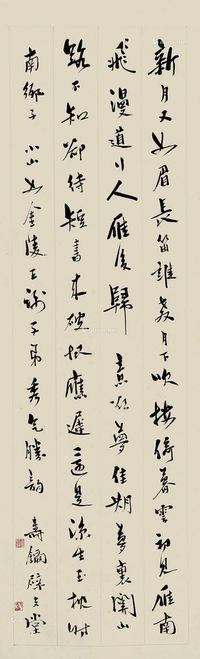 新月又如眉長笛誰教月下吹樓倚暮雲初見雁南
飛漫道行人雁後歸 意欲夢佳期夢裏關山
路不知卻待短書來破恨應遲還是涼生玉枕時
南鄉子 小山如金陵王謝子弟秀氣勝韻 壽 堂